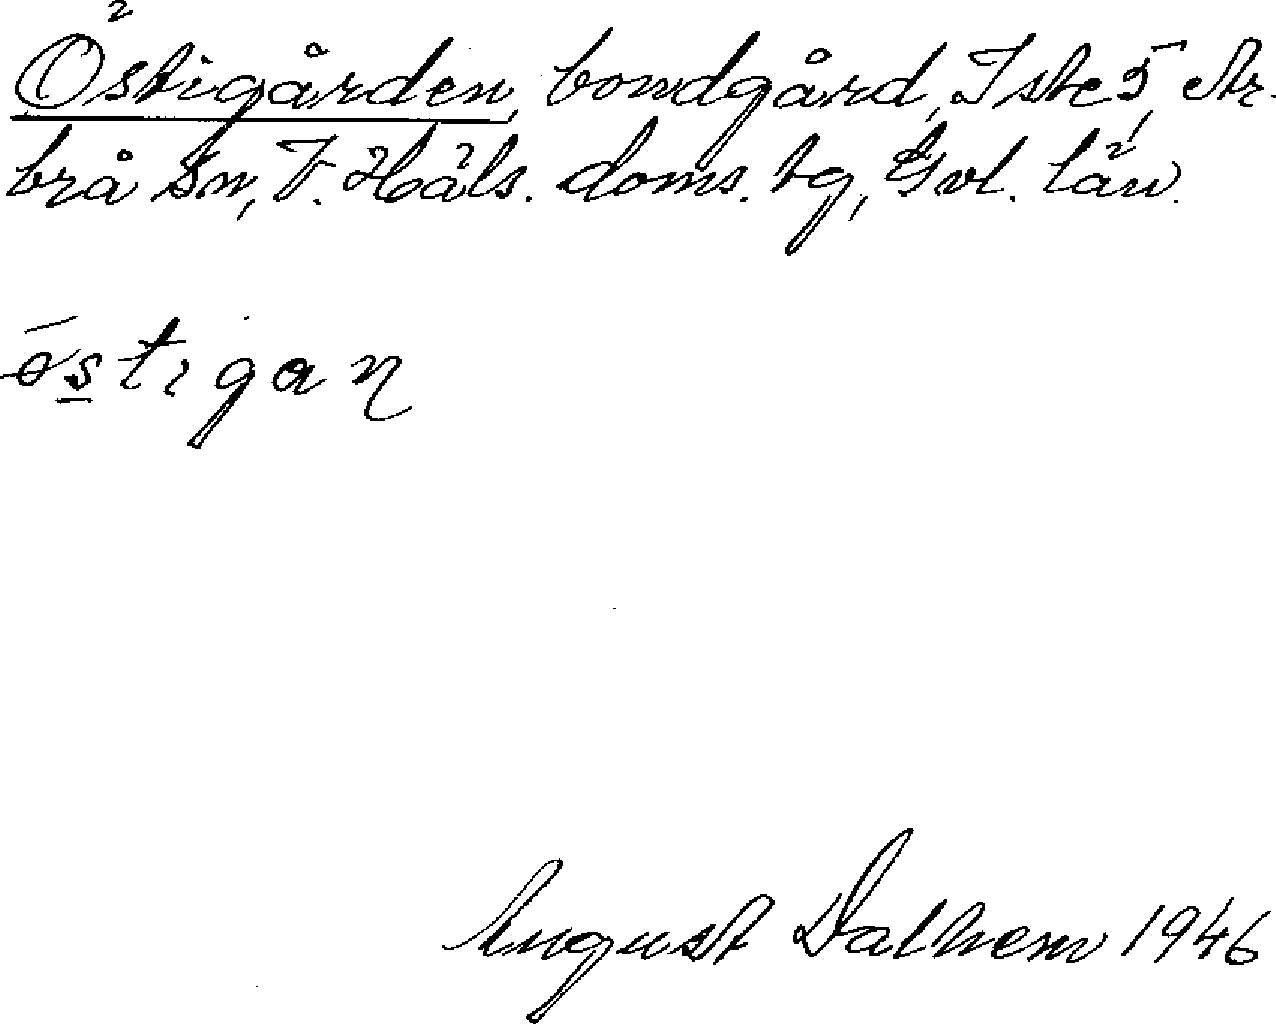 Östigården, bondgård, Iste 5, Ar-
brå sn, V. Häls. doms. tg, Gvl. län.
östigan
August Dalhem 1946